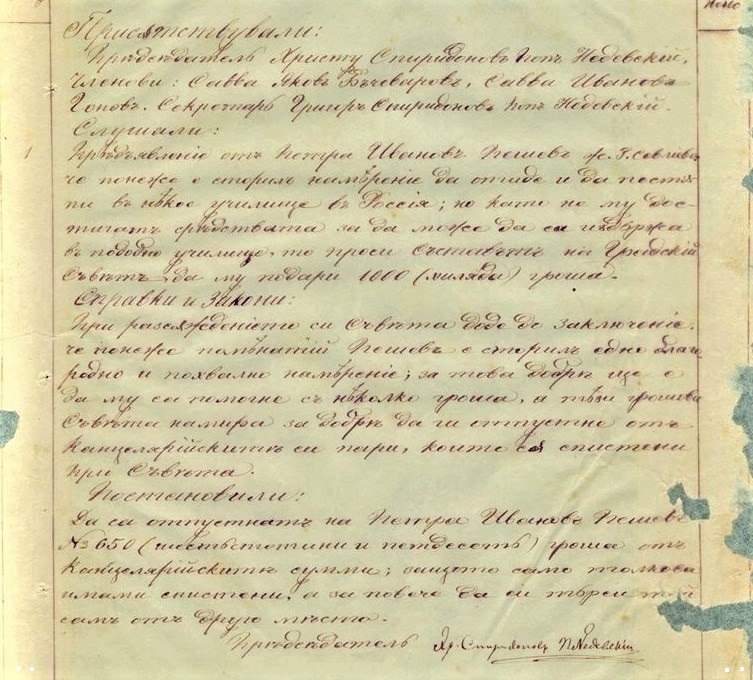 Присѫтствували:
Прѣдсѣдатель Христу Спиридоновъ Попъ Недевскій,
Членови: Савва Яковъ Бъчеваровъ, Савва Ивановъ
Гоповъ. Секретарь Григоръ Спиридоновъ Попъ Недевскій.
Слушали:
1 Прѣдъявленіе отъ Петра Ивановъ Пешевъ ж. г. севліев.
че понеже е сторилъ намѣреніе да отиде и да постѫ-
пи въ нѣкое училище въ Россія; но като не му дос-
тигатъ срѣдствата за да може да са издържа
въ подобно училище, то проси съставътъ на Градскій
Съвѣтъ да му подари 1000 (хиляда) гроша.
Справки и Закони:
При разсѫжденіето си Съвѣта доде до заключеніе.
че понеже помѣнатій Пешевъ е сторилъ едно благо
родно и похвално намѣреніе; за това добрѣ ще е
да му са помогне съ нѣколко гроша, а тѣзи грошове
Съвѣта намира за добрѣ да ги отпустне отъ
Канцелярійскитѣ си пари, които сѫ спистени
при Съвѣта.
Постановили:
Да са отпустнатъ на Петра Ивановъ Пешевъ
№ 650 (шестьстотини и петдесеть) гроша отъ
Канцелярійскитѣ сумми; защото само толкова
имами спистени, а за повече да си търси той
самъ отъ друго мѣсто.
Прѣдсѣдатель Хр. Спиридоновъ П. Недевскій